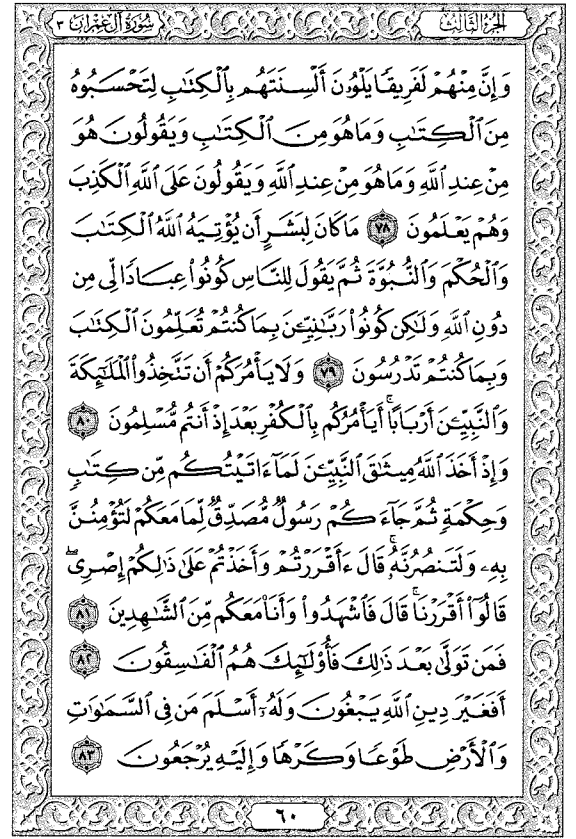 الجزء الثالث
سورة آل عمران ٣
وَإِنَّ مِنْهُمْ لَفَرِيقًا يَلْوُۥنَ أَلْسِنَتَهُم بِٱلْكِتَٰبِ لِتَحْسَبُوهُ
مِنَ ٱلْكِتَٰبِ وَمَا هُوَ مِنَ ٱلْكِتَٰبِ وَيَقُولُونَ هُوَ
مِنْ عِندِ ٱللَّهِ وَمَا هُوَ مِنْ عِندِ ٱللَّهِ وَيَقُولُونَ عَلَى ٱللَّهِ ٱلْكَذِبَ
وَهُمْ يَعْلَمُونَ ٧٨ مَا كَانَ لِبَشَرٍ أَن يُؤْتِيَهُ ٱللَّهُ ٱلْكِتَٰبَ
وَٱلْحُكْمَ وَٱلنُّبُوَّةَ ثُمَّ يَقُولَ لِلنَّاسِ كُونُوا۟ عِبَادًا لِّى مِن
دُونِ ٱللَّهِ وَلَٰكِن كُونُوا۟ رَبَّٰنِيِّـۧنَ بِمَا كُنتُمْ تُعَلِّمُونَ ٱلْكِتَٰبَ
وَبِمَا كُنتُمْ تَدْرُسُونَ ٧٩ وَلَا يَأْمُرَكُمْ أَن تَتَّخِذُوا۟ ٱلْمَلَٰٓئِكَةَ
وَٱلنَّبِيِّـۧنَ أَرْبَابًا ۗ أَيَأْمُرُكُم بِٱلْكُفْرِ بَعْدَ إِذْ أَنتُم مُّسْلِمُونَ ٨٠
وَإِذْ أَخَذَ ٱللَّهُ مِيثَٰقَ ٱلنَّبِيِّـۧنَ لَمَآ ءَاتَيْتُكُم مِّن كِتَٰبٍ
وَحِكْمَةٍ ثُمَّ جَآءَكُمْ رَسُولٌ مُّصَدِّقٌ لِّمَا مَعَكُمْ لَتُؤْمِنُنَّ
بِهِۦ وَلَتَنصُرُنَّهُۥ ۚ قَالَ ءَأَقْرَرْتُمْ وَأَخَذْتُمْ عَلَىٰ ذَٰلِكُمْ إِصْرِى ۖ
قَالُوٓا۟ أَقْرَرْنَا ۚ قَالَ فَٱشْهَدُوا۟ وَأَنَا۠ مَعَكُم مِّنَ ٱلشَّٰهِدِينَ ٨١
فَمَن تَوَلَّىٰ بَعْدَ ذَٰلِكَ فَأُو۟لَٰٓئِكَ هُمُ ٱلْفَٰسِقُونَ ٨٢
أَفَغَيْرَ دِينِ ٱللَّهِ يَبْغُونَ وَلَهُۥٓ أَسْلَمَ مَن فِى ٱلسَّمَٰوَٰتِ
وَٱلْأَرْضِ طَوْعًا وَكَرْهًا وَإِلَيْهِ يُرْجَعُونَ ٨٣
٦٠